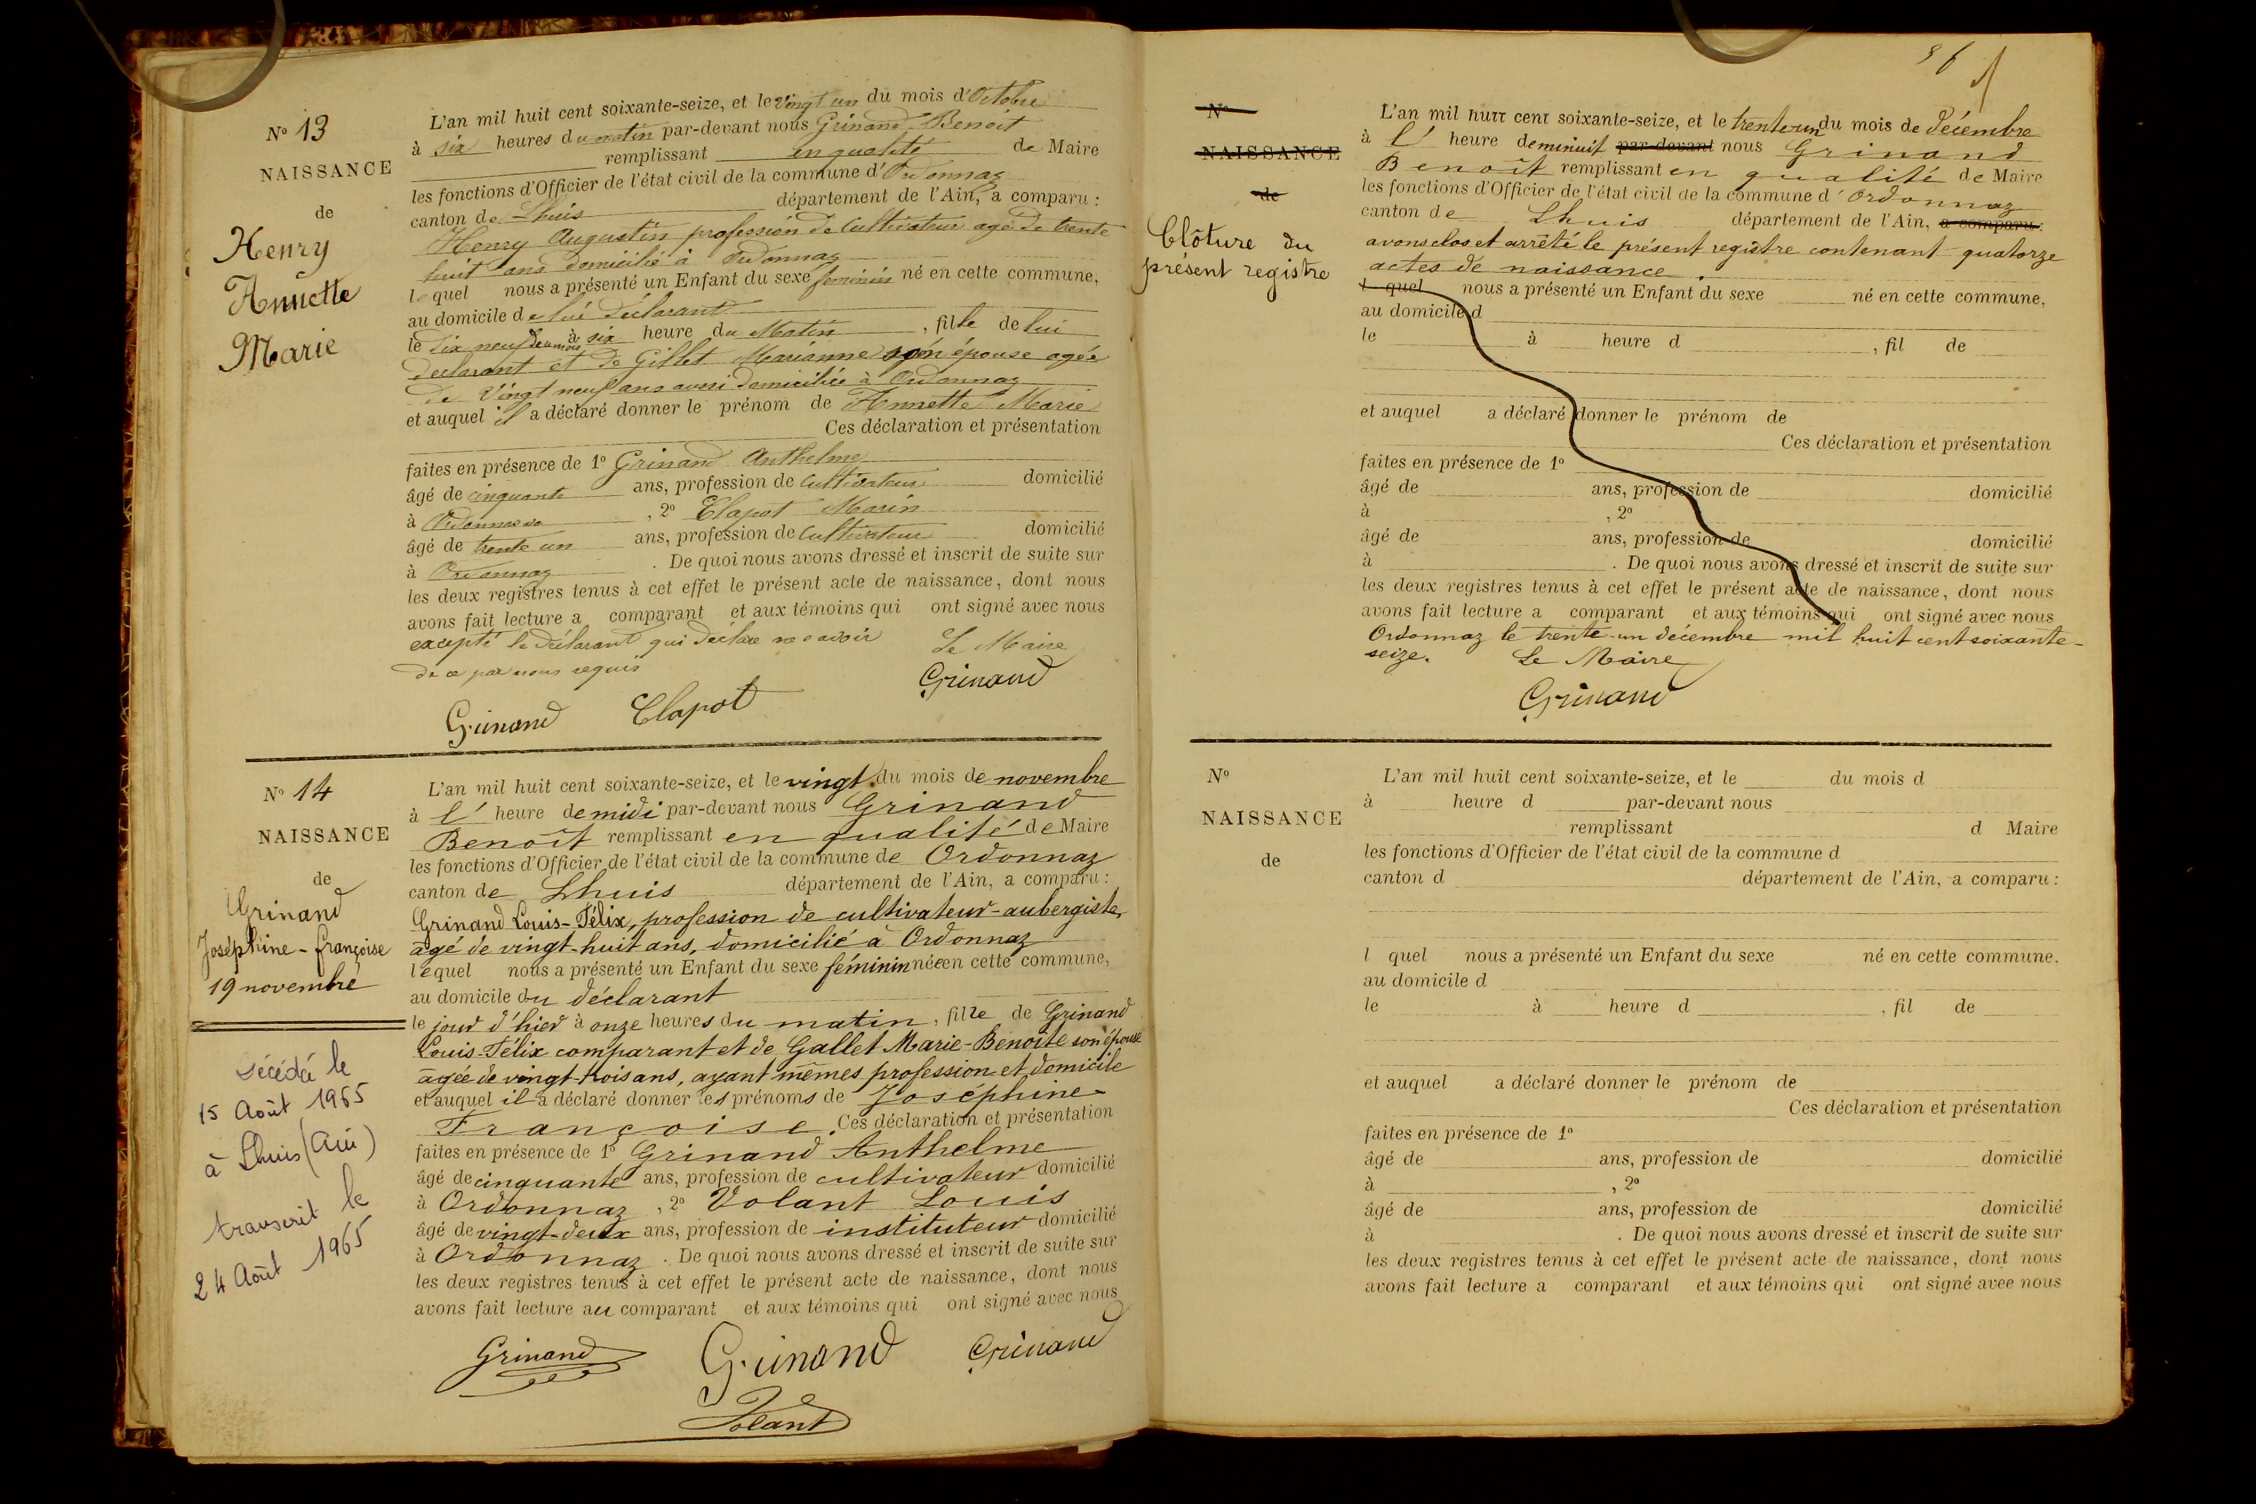 N° 13
NAISSANCE
de
Henry
Annette
Marie
L'an mil huit cent soixante-seize, et le vingt un du mois d'Octobre
à six heures du matin par-devant nous Grinand Benoit
remplissant en qualité de Maire
les fonctions d'Officier de l'état civil de la commune d'Ordonnaz
canton de Lhuis département de l'Ain, a comparu :
Henry Augustin profession de Cultivateur agé de trente
huit ans domicilié à Ordonnaz
lequel nous a présenté un Enfant du sexe feminin né en cette commune,
au domicile de lui déclarant
le dix neuf du mois à six heure du Matin, fille de lui
declarant et de Gillet Marianne son épouse agée
de Vingt neuf ans aussi domiciliée à Ordonnaz
et auquel il a déclaré donner le prénom de Annette Marie
Ces déclaration et présentation
faites en présence de 1° Grinand Anthelme
âgé de cinquante ans, profession de Cultivateur domicilié
à Ordonnaz, 2° Clapot Marin
âgé de trente un ans, profession de Cultivateur domicilié
à Ordonnaz. De quoi nous avons dressé et inscrit de suite sur
les deux registres tenus à cet effet le présent acte de naissance, dont nous
avons fait lecture a comparant et aux témoins qui ont signé avec nous
excepté le déclarant qui déclare ne savoir Le Maire
de ce par nous requis Grinand
Grinand Clapot
N° 14
NAISSANCE
de
Grinand
Joséphine-Françoise
19 novembre
Décédée le
15 Août 1965
à Lhuis (Ain)
transcrit le
24 Août 1965
L'an mil huit cent soixante-seize, et le vingt du mois de novembre
à l' heure de midi par-devant nous Grinand
Benoît remplissant en qualité de Maire
les fonctions d'Officier de l'état civil de la commune de Ordonnaz
canton de Lhuis département de l'Ain, a comparu :
Grinand Louis-Félix, profession de cultivateur-aubergiste,
âgé de vingt-huit ans, domicilié à Ordonnaz
lequel nous a présenté un Enfant du sexe féminin née en cette commune,
au domicile du déclarant
le jour d'hier à onze heures du matin, fille de Grinand
Louis-Félix comparant et de Gallet Marie-Benoîte son épouse
âgée de vingt-trois ans, ayant mêmes profession et domicile
et auquel il a déclaré donner les prénoms de Joséphine-
Françoise. Ces déclaration et présentation
faites en présence de 1° Grinand Anthelme
âgé de cinquante ans, profession de cultivateur domicilié
à Ordonnaz, 2° Volant Louis
âgé de vingt-deux ans, profession de instituteur domicilié
à Ordonnaz. De quoi nous avons dressé et inscrit de suite sur
les deux registres tenus à cet effet le présent acte de naissance, dont nous
avons fait lecture au comparant et aux témoins qui ont signé avec nous
Grinand Grinand Grinand
Volant
N°
NAISSANCE
de
Clôture du
présent registre
L'an mil huit cent soixante-seize, et le trente-un du mois de décembre
à l' heure de minuit par-devant nous Grinand
Benoît remplissant en qualité de Maire
les fonctions d'Officier de l'état civil de la commune d'Ordonnaz
canton de Lhuis département de l'Ain, a comparu :
avons clos et arrêté le présent registre contenant quatorze
actes de naissance.
l quel nous a présenté un Enfant du sexe né en cette commune,
au domicile d
le à heure d , fil de
et auquel a déclaré donner le prénom de
Ces déclaration et présentation
faites en présence de 1°
âgé de ans, profession de domicilié
à , 2°
âgé de ans, profession de domicilié
à . De quoi nous avons dressé et inscrit de suite sur
les deux registres tenus à cet effet le présent acte de naissance, dont nous
avons fait lecture a comparant et aux témoins qui ont signé avec nous
Ordonnaz le trente-un décembre mil huit cent soixante-
seize. Le Maire
Grinand
N°
NAISSANCE
de
L'an mil huit cent soixante-seize, et le du mois d
à heure d par-devant nous
remplissant d Maire
les fonctions d'Officier de l'état civil de la commune d
canton d département de l'Ain, a comparu :
l quel nous a présenté un Enfant du sexe né en cette commune.
au domicile d
le à heure d , fil de
et auquel a déclaré donner le prénom de
Ces déclaration et présentation
faites en présence de 1°
âgé de ans, profession de domicilié
à , 2°
âgé de ans, profession de domicilié
à . De quoi nous avons dressé et inscrit de suite sur
les deux registres tenus à cet effet le présent acte de naissance, dont nous
avons fait lecture a comparant et aux témoins qui ont signé avec nous